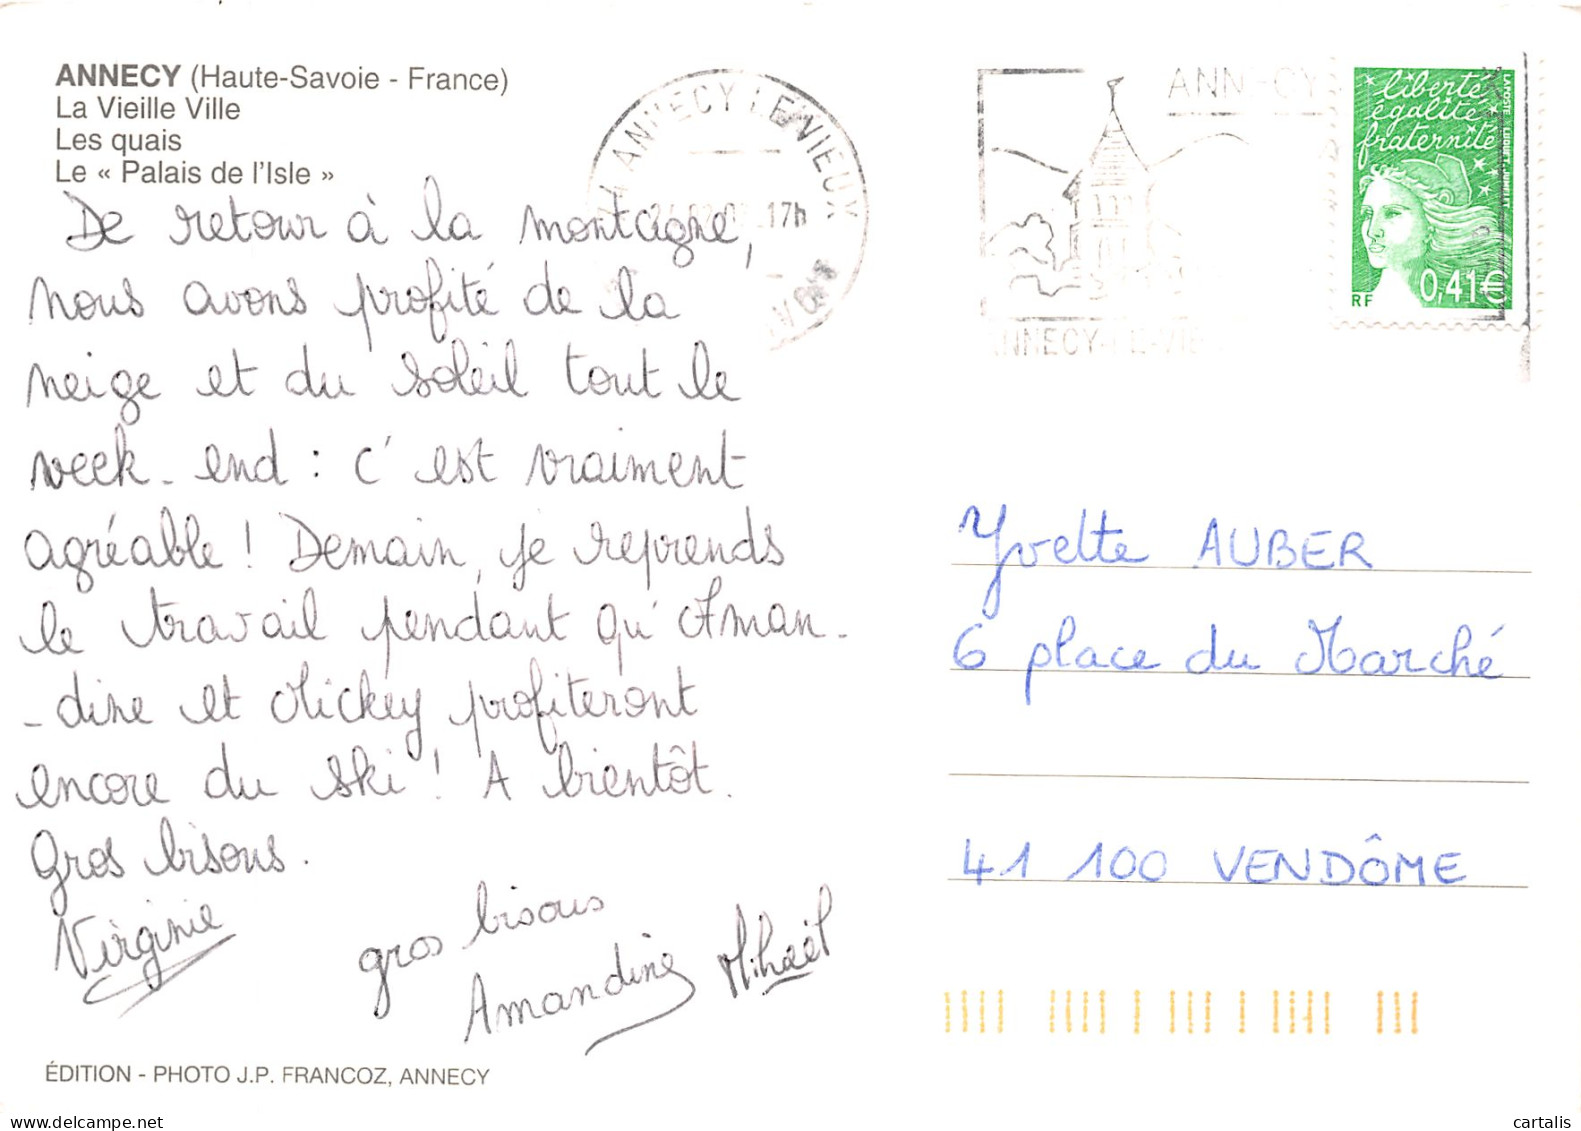 ANNECY (Haute-Savoie - France)
La Vieille Ville
Les quais
Le « Palais de l'Isle »
De retour à la montagne,
nous avons profité de la
neige et du soleil tout le
week-end : c'est vraiment
agréable ! Demain, je reprends
le travail pendant qu'Aman-
-dine et Mickey profiteront
encore du ski ! A bientôt.
Gros bisous.
Virginie
gros bisous
Amandine Mihaël
ÉDITION - PHOTO J.P. FRANCOZ, ANNECY
ANNECY LE VIEUX
17h
ANNECY
ANNECY-LE-VIE
liberté
égalité
fraternité
RF 0,41€
LA POSTE
Yvette AUBER
6 place du Marché
41 100 VENDÔME
cartalis